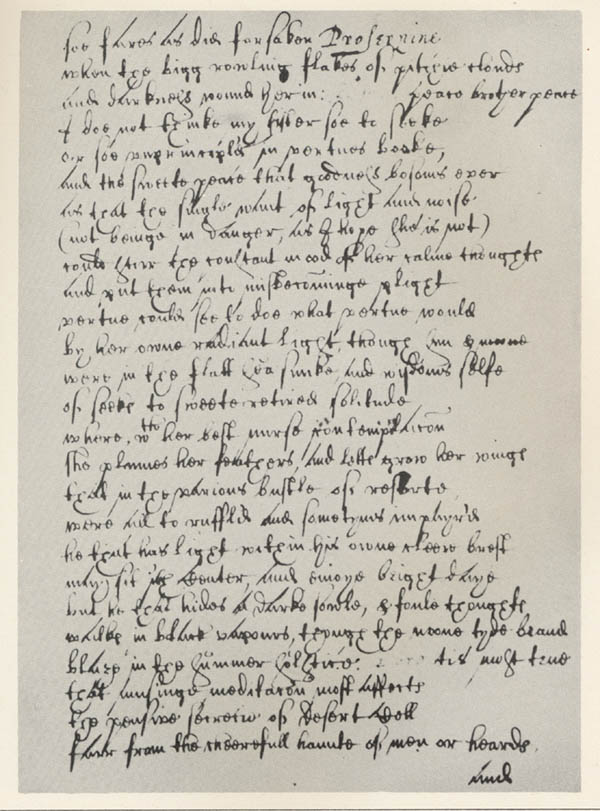 soe fares as did forsaken Proserpine
when the bigg rowling flakes of pitchie clouds
and darknes wound her in: peace brother peace
I doe not thinke my sister soe to seeke
or soe vnprincipl'd in vertues booke,
and the sweete peace that goodnes bosoms ever
as that the single want of light and noise
(not beinge in danger, as I hope she is not)
could stirr the constant mood of her calme thoughts
and put them into misbecominge plight
vertue could see to doe what vertue would
by her owne radiant light, though sun & moone
were in the flatt sea sunke, and wisdoms selfe
of seeks to sweete retired solitude
where, wth her best nurse Contemplacon
she plumes her feathers, and letts grow her wings
that in the various bustle of resorte
were all to ruffled and sometymes impayr'd
he that has light within his owne cleere brest
may sit ith Center, and enioye bright daye
but he that hides a darke soule, & foule thoughts
walks in black vapours, though the noone tyde brand
blaze in the summer solstice. tis most true
that musinge meditacon most affects
the pensive secrecie of desert Cell
farr from the cheerefull haunte of men or heards,
and